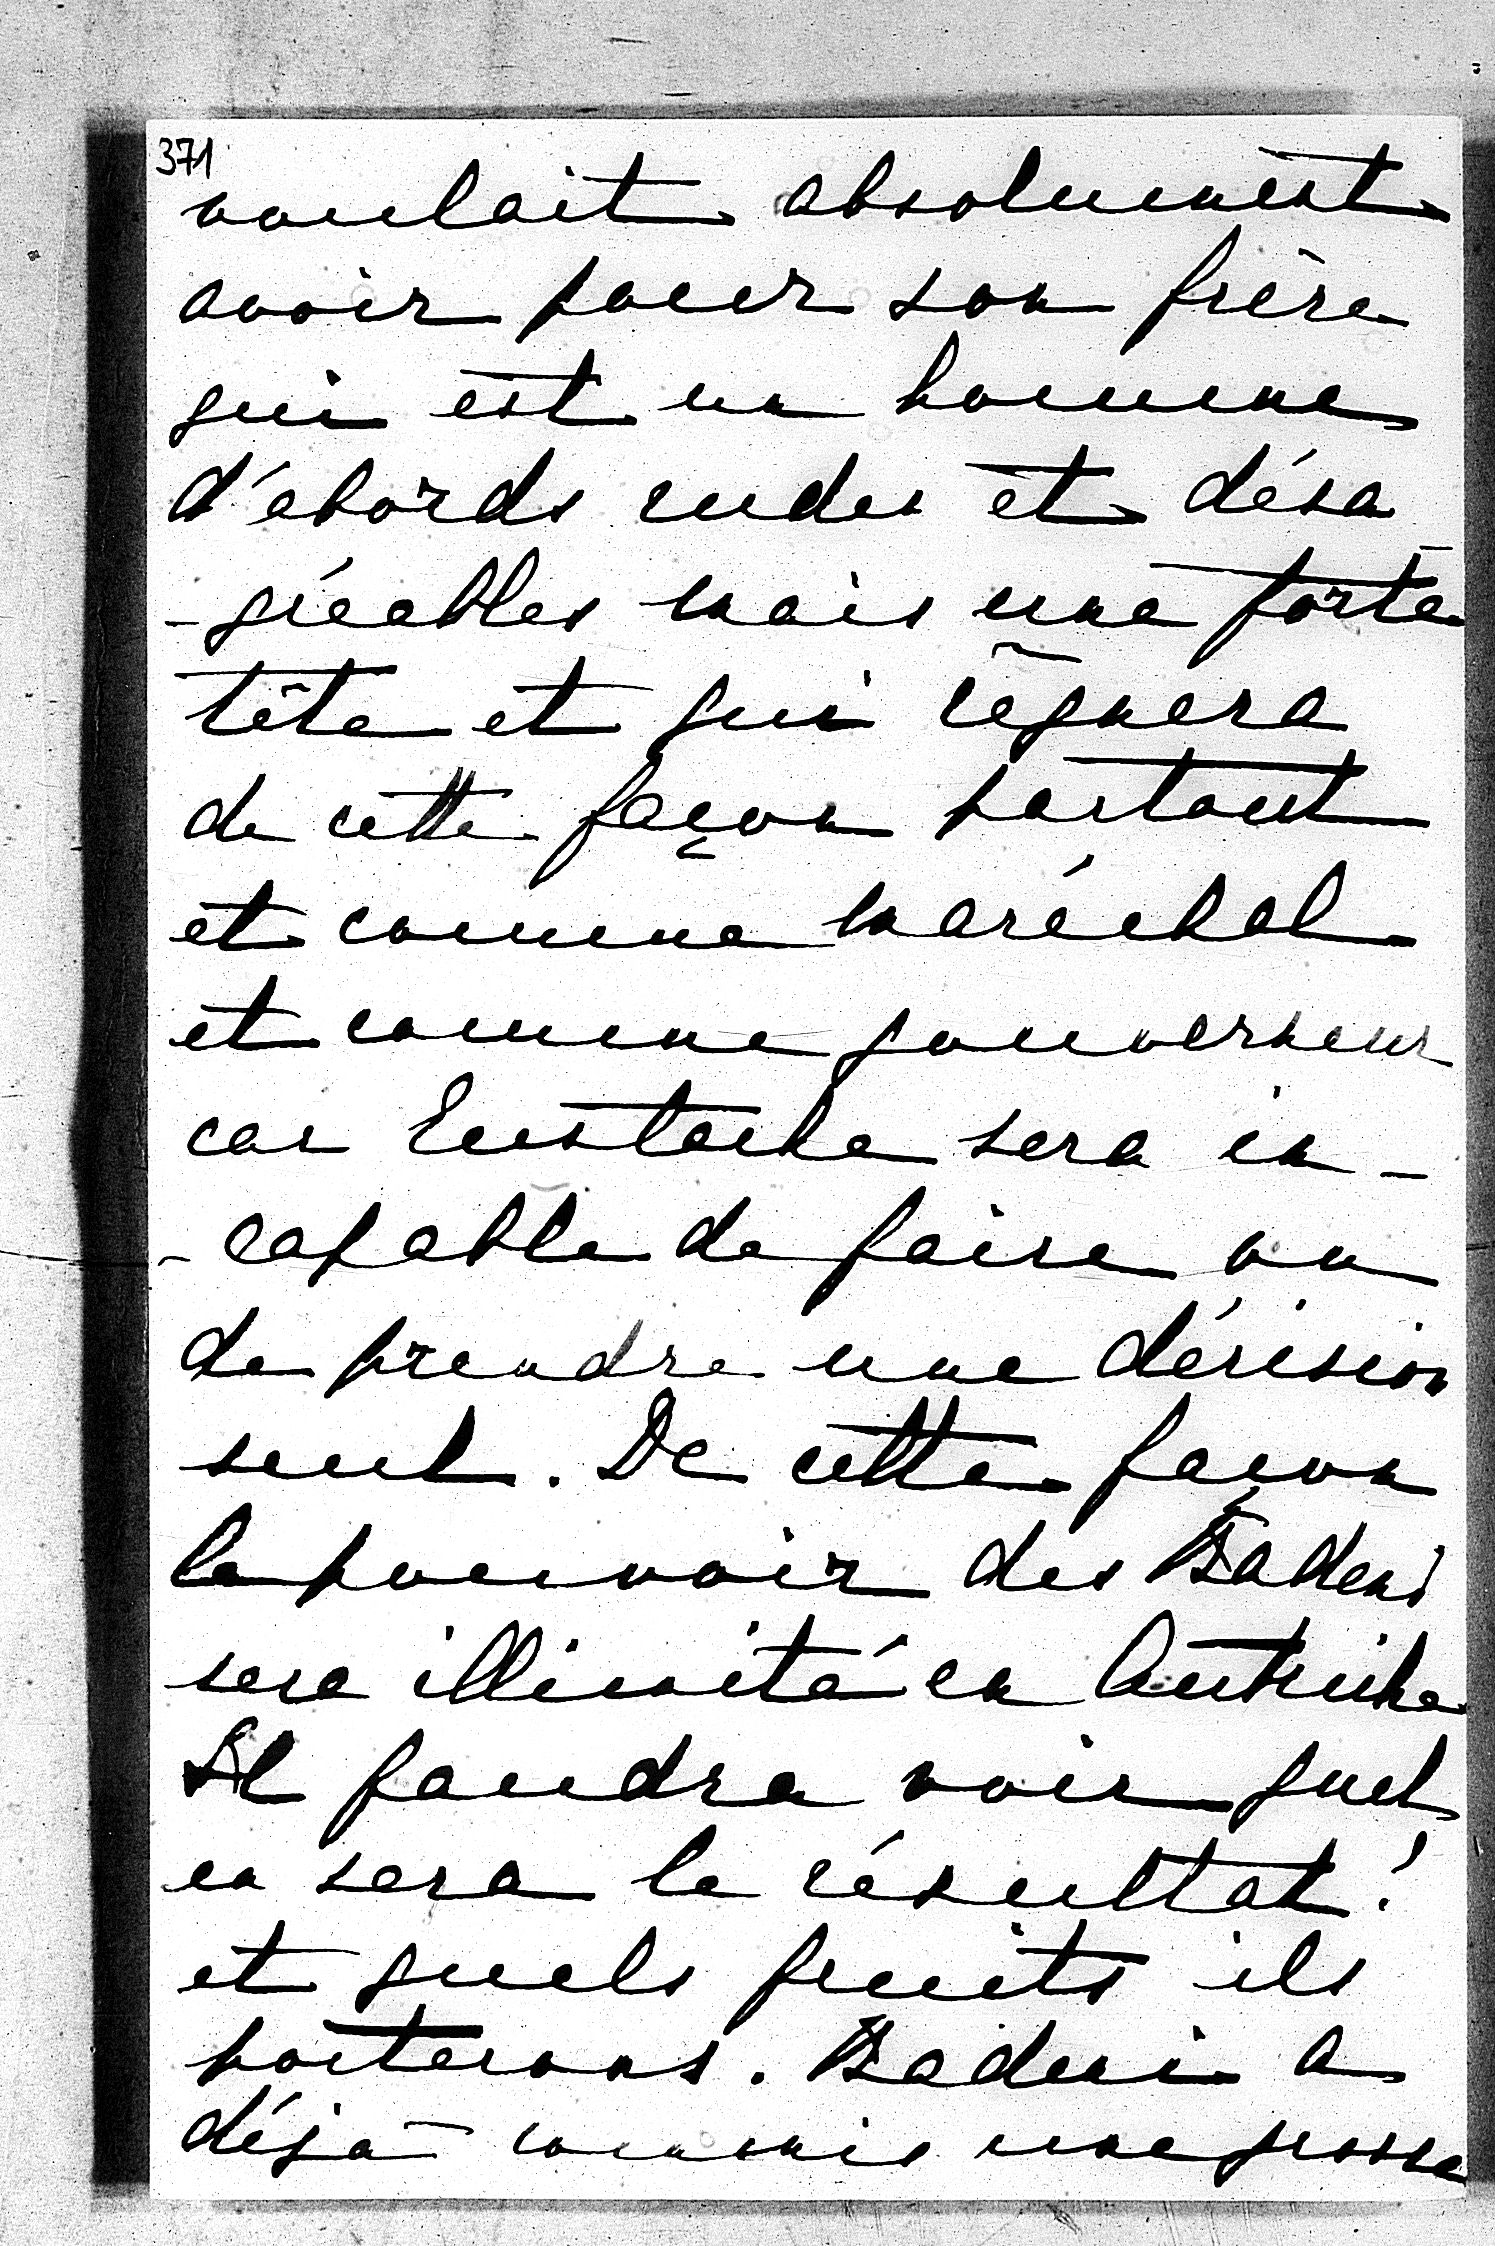 371
voulait absolument
avoir pour son frère
qui est un homme
d'abords rudes et désa
-gréables mais une forte
tête et qui règnera
de cette façon partout
et comme maréchal
et comme gouverneur
car Eustache sera in-
-capable de faire ou
de prendre une décision
seul. De cette façon
le pouvoir des Badeni
sera illimité en Autriche
Il faudra voir quel
en sera le résultat!
et quels fruits ils
porterons. Badeni a
déjà commis une grosse